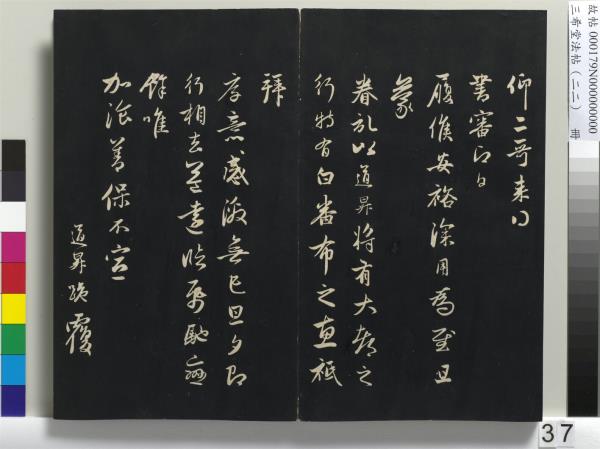 仰二哥来日
書審即日
履候安裕深用為慰且
蒙
眷私以道昇將有大都之
行特有白番布之惠祇
拜
厚意感激無已旦夕即
行相去益遠臨紙馳
餘唯
加湌善保不宣
道昇跪覆
故帖 000179N000000000
三希堂法帖(二二) 冊
37